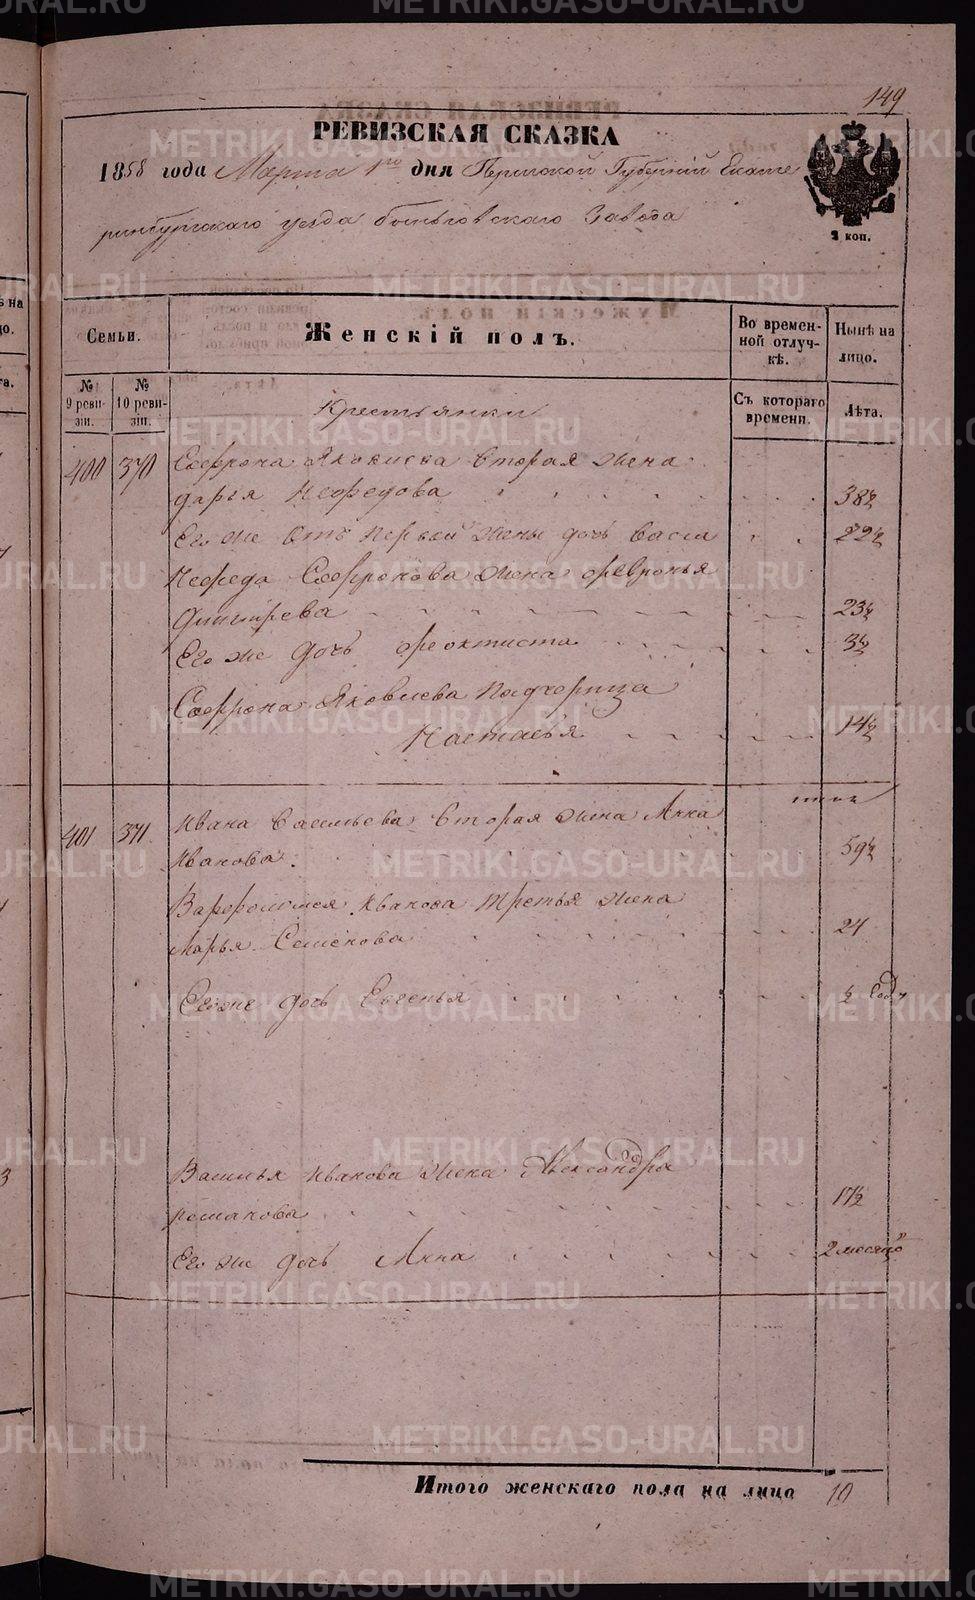 149
РЕВИЗСКАЯ СКАЗКА
1858 года Марта 1го дня Пермской Губерніи Екате
ринбургскаго уезда быньговскаго Завода
2 коп.
Семьи.
Женскій полъ.
Во времен-
ной отлуч-
кѣ.
Нынѣ на
лицо.
№
9 реви-
зіи.
№
10 реви-
зіи.
Съ котораго
времени.
Лѣта.
Крестьянки
400 370 Софрона Яковлева вторая жена
дарья Нефедова 38½
Его же отъ первой жены дочь Васса 22½
Нефеда Софронова жена февронья
дмитрева 23½
Его же дочь феоктиста 3½
Софрона Яковлева падчерица
Настасья 14½
401 371 Ивана васильева вторая жена Анна
Иванова. 59½
Варфоломея Иванова третья жена
Марья Семенова 24
Его же дочь Евгенья ½ году
Василья Иванова жена Александра
романова 17½
Его же дочь Анна 2 месяцо
Итого женскаго пола на лицо 10
METRIKI.GASO-URAL.RU